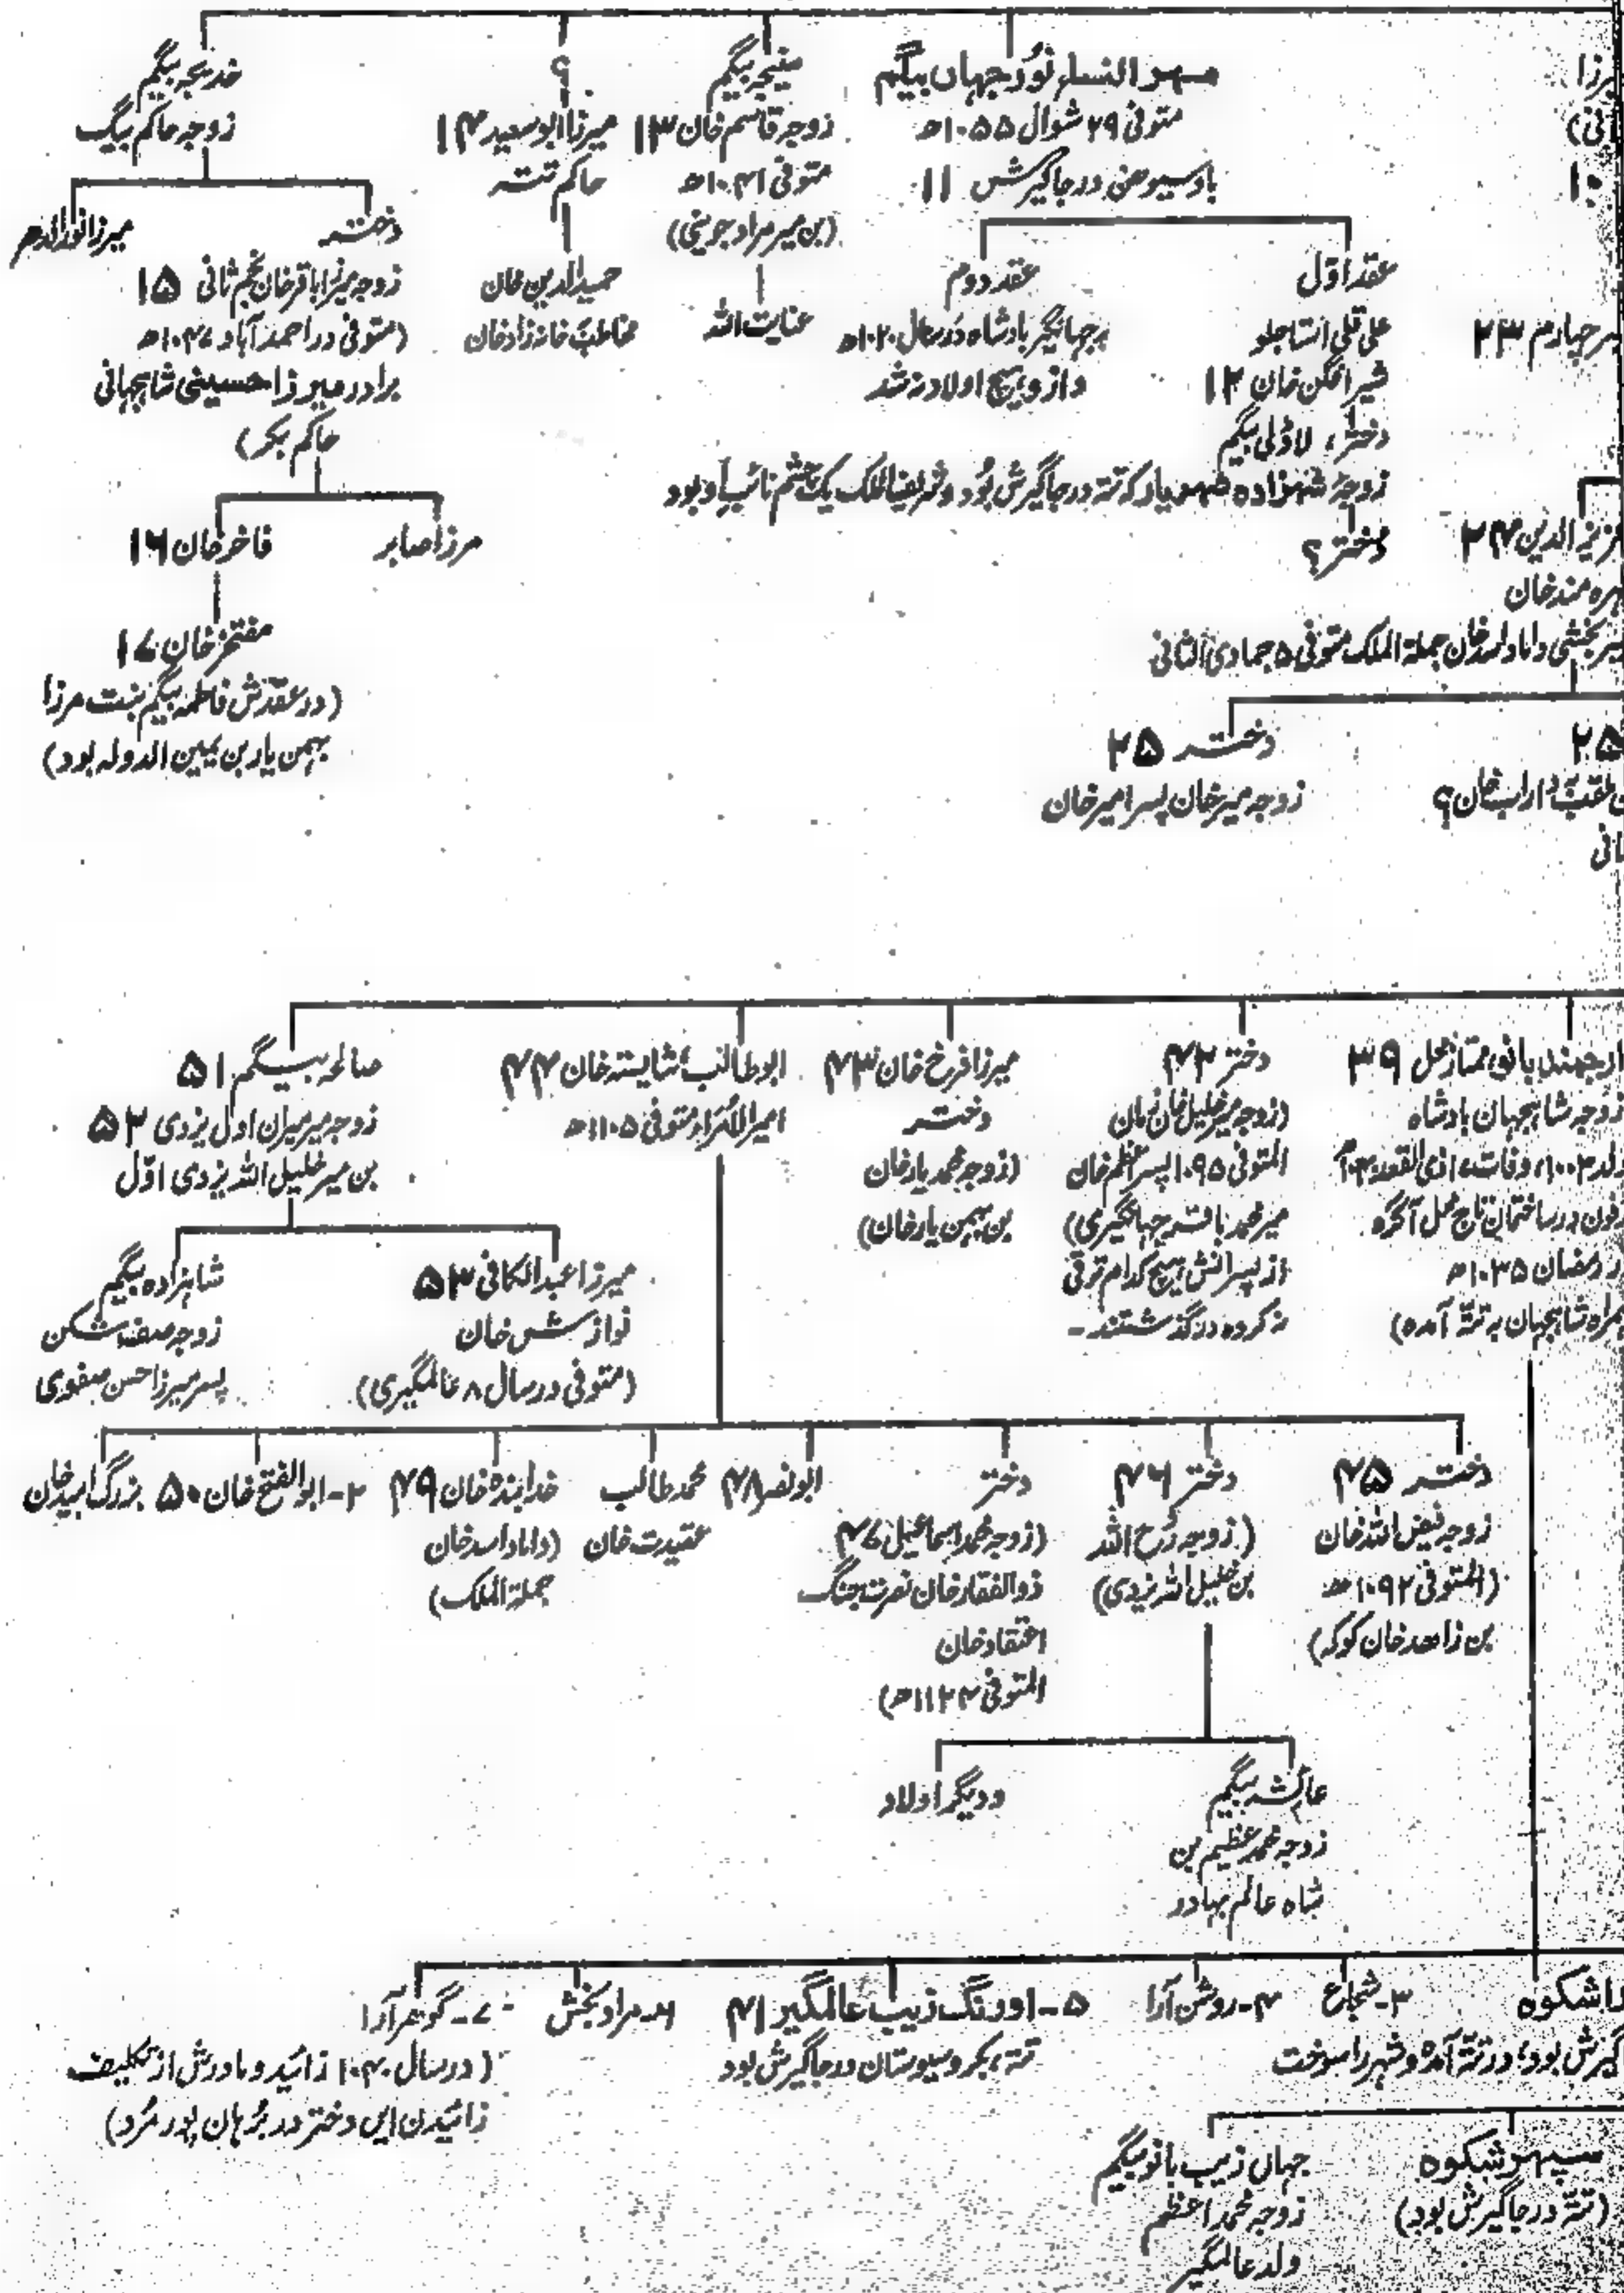 مهر النساء نورجهاں بیگم
متوفی ۲۹ شوال ۱۰۵۵ھ
بادسیوهن در جاگیرش ۱۱
عقد اوّل
علی قلی استاجلو
شیر افگن خان ۱۲
دختر، لاڈلی بیگم
زوجۂ شهزاده شهریار که تته در جاگیرش بُود و شریف الملک یک چشم نائبِ او بود
دختر؟
عقد دوم
بر جهانگیر بادشاه در سال ۱۰۲۰ھ
و از و هیچ اولاد نه شد
منیجه بیگم
زوجه قاسم خان ۱۳
متوفی ۱۰۴۱ھ
(بن میر مراد جوینی)
عنایت الله
؟
میرزا ابوسعید ۱۴
حاکم تته
حمید الدین خان
مخاطب خانه زاد خان
خدیجه بیگم
زوجه حاکم بیگ
دختر
زوجه میرزا باقر خان نجم ثانی ۱۵
(متوفی در احمد آباد ۱۰۴۷ھ
برادر میرزا حسینی شاهجهانی
حاکم بکر)
میرزا نورالدهر
مرزا صابر
فاخر خان ۱۶
مفتخر خان ۱۷
(در عقدش فاطمه بیگم بنت مرزا
بهمن یار بن یمین الدوله بود)
میرزا
۱۰
چهارم ۲۳
عزیز الدین ۲۴
بهره مند خان
میر بخشی داماد اسد خان جملة الملک متوفی ۵ جمادی الثانی
۲۵
ملقب به داراب خان؟
دختر ۲۵
زوجه میر خان پسر امیر خان
ارجمند بانو ممتاز محل ۳۹
زوجه شاهجهان بادشاه
در ساختمان تاج محل آگره
رمضان ۱۰۳۵ھ
همراه شاهجهان به تته آمده)
دختر ۴۲
(زوجه میر خلیل خان زمان
المتوفی ۱۰۹۵ پسر اعظم خان
میر محمد باقر جهانگیری)
از پسرانش هیچ کدام ترقی
نه کرده درگذشتند-
میرزا فرخ خان ۴۳
دختر
(زوجه محمد یار خان
بن بهمن یار خان)
ابوطالب، شایسته خان ۴۴
امیر الامراء متوفی ۱۱۰۵ھ
صالحه بیگم ۵۱
زوجه میر میران اول یزدی ۵۲
بن میر خلیل الله یزدی اوّل
میرزا عبدالکافی ۵۳
نوازش خان
(متوفی در سال ۸ عالمگیری)
شاهزاده بیگم
زوجه صف شکن
پسر میرزا حسن صفوی
دختر ۴۵
زوجه فیض الله خان
(المتوفی ۱۰۹۲ھ
بن زاهد خان کوکه)
دختر ۴۶
(زوجه رُح الله
بن خلیل الله یزدی)
دختر
(زوجه محمد اسماعیل ۴۷
ذوالفقار خان نصرت جنگ
اعتقاد خان
المتوفی ۱۱۲۴ھ)
ابونصر ۴۸
محمد طالب
عقیدت خان
خدابنده خان ۴۹
(داماد اسد خان
جملة الملک)
۲-ابوالفتح خان ۵۰
بزرگ امید خان
عائشه بیگم
زوجه محمد عظیم بن
شاه عالم بهادر
و دیگر اولاد
داراشکوه
جاگیرش بود، در تته آمده و شهر را سوخت
۳-شجاع
۴-روشن آرا
۵-اورنگ زیب عالمگیر ۴۱
تته، بکر و سیوستان در جاگیرش بود
۶-مراد بخش
۷-گوهر آرا
(در سال ۱۰۴۰ زائید و مادرش از تکلیف
زائیدن این دختر در بُرهان پور مُرد)
سپهر شکوه
(تته در جاگیرش بود)
جهاں زیب بانو بیگم
زوجه محمد اعظم
ولد عالمگیر